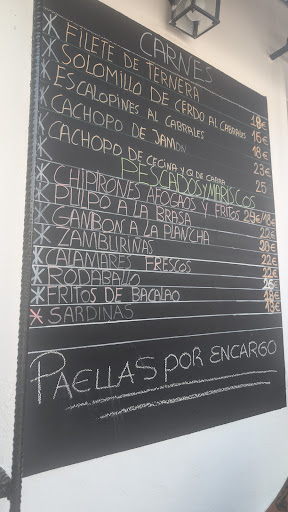 CARNES
FILETE DE TERNERA
SOLOMILLO DE CERDO AL CABRALES 16€
ESCALOPINES AL CABRALES 18€
CACHOPO DE JAMON 23€
CACHOPO DE CECINA Y Q DE CABRA 25
PESCADOS Y MARISCOS
CHIPIRONES AFOGAOS Y FRITOS
PULPO A LA BRASA 22€
GAMBON A LA PLANCHA
ZAMBURIÑAS 20€
CALAMARES FRESCOS 22€
RODABALLO
FRITOS DE BACALAO
SARDINAS
PAELLAS POR ENCARGO